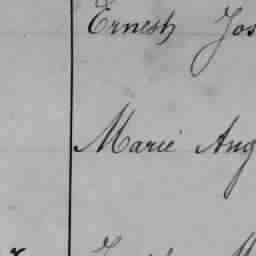 Ernest Jos
Marie Aug